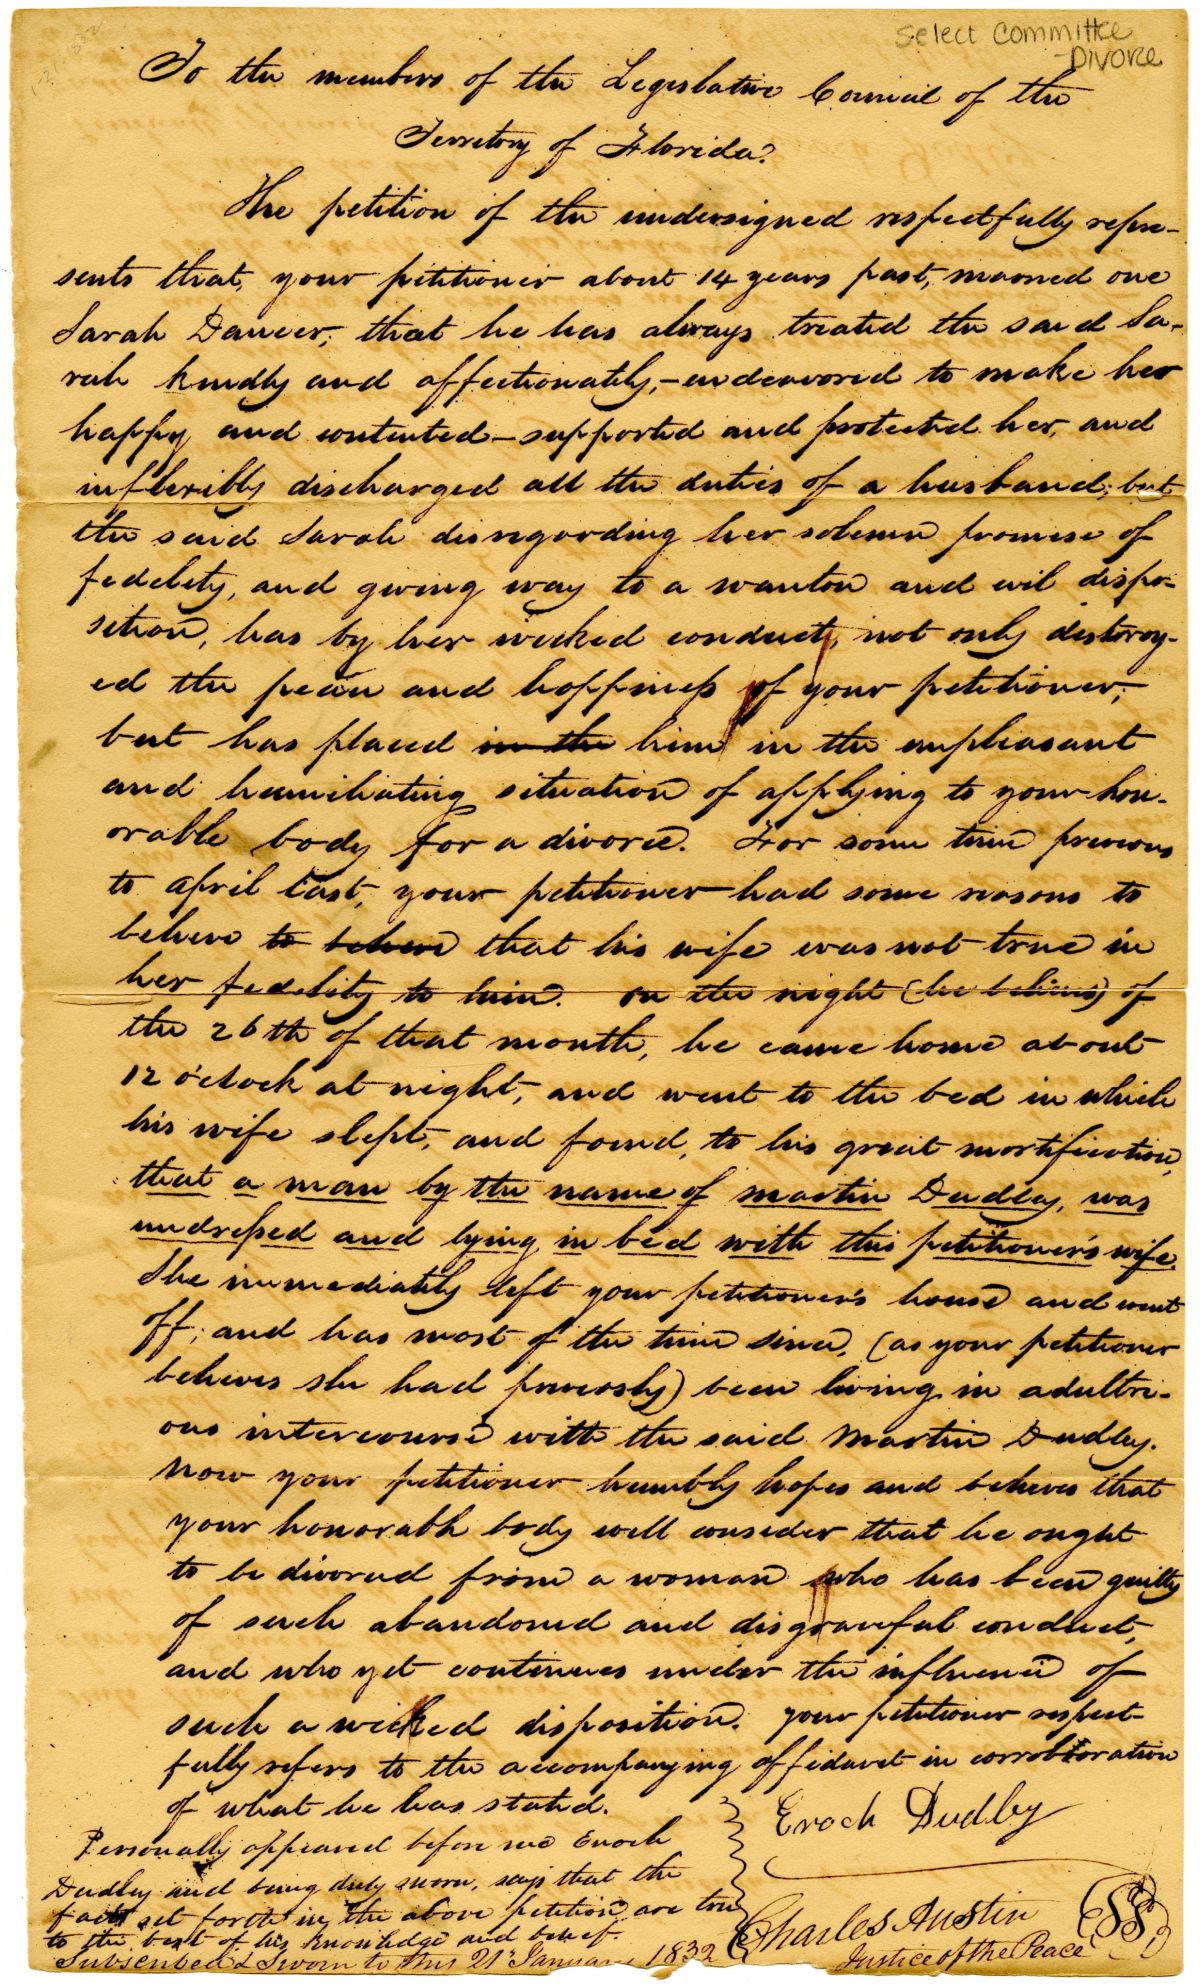 Select Committee
-Divorce
To the members of the Legislative Council of the
Territory of Florida.
The petition of the undersigned respectfully repre-
sents that, your petitioner about 14 years past, married one
Sarah Dancer, that he has always treated the said Sa-
rah kindly and affectionately,-endeavored to make her
happy and contented-supported and protected her, and
inflexibly discharged all the duties of a husband; but
the said Sarah disregarding her solemn promise of
fedelity, and giving way to a wanton and evil dispo-
sition, has by her wicked conduct, not only distroy-
ed the peace and happiness of your petitioner,
but has placed in the him in the unpleasant
and humiliating situation of applying to your hon-
orable body for a divorce. For some time previous
to April last, your petitioner had some reasons to
believe to believe that his wife was not true in
her fedelity to him. On the night (he believes) of
the 26th of that month, he came home about
12 o'clock at night, and went to the bed in which
his wife slept, and found, to his great mortification,
that a man by the name of Martin Dudley, was
undressed and lying in bed with this petitioner's wife.
She immediately left your petitioner's house and went
off; and has most of the time since, (as your petitioner
believes she had previously) been living in adultri-
ous intercourse with the said Martin Dudley.
Now your petitioner humbly hopes and believes that
your honorable body will consider that he ought
to be divorced from a woman who has been guilty
of such abandoned and disgraceful conduct,
and who yet continues under the influence of
such a wicked disposition. Your petitioner respect-
fully refers to the accompanying affidavit in corroboration
of what he has stated.
Enoch Dudley
Personally appeared before me Enoch
Dudley and being duly sworn, says that the
facts set forth in the above petition are true
to the best of his knowledge and belief.
Subscribed & Sworn to this 21st January 1832
Charles Austin
Justice of the Peace